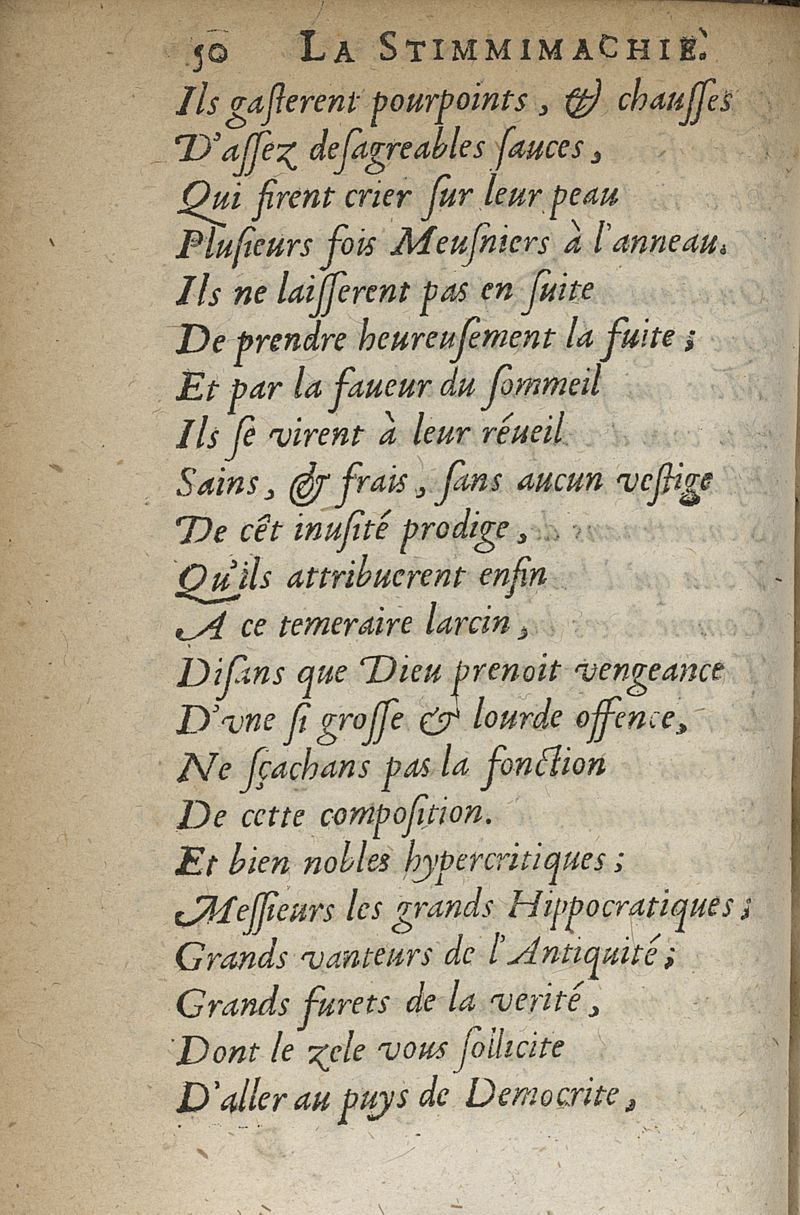 50 LA STIMMIMACHIE.
Ils gaſterent pourpoints, & chauſſes
D'aſſez deſagreables ſauces,
Qui firent crier ſur leur peau
Pluſieurs fois Meuſniers à l'anneau.
Ils ne laiſſerent pas en ſuite
De prendre heureuſement la fuite;
Et par la faueur du ſommeil
Ils ſe virent à leur réueil
Sains, & frais, ſans aucun veſtige
De cêt inuſité prodige,
Qu'ils attribuerent enfin
A ce temeraire larcin,
Diſans que Dieu prenoit vengeance
D'vne ſi groſſe & lourde offence,
Ne ſçachans pas la fonction
De cette compoſition.
Et bien nobles hypercritiques;
Meſſieurs les grands Hippocratiques;
Grands vanteurs de l'Antiquité;
Grands furets de la verité,
Dont le zele vous ſollicite
D'aller au puys de Democrite,